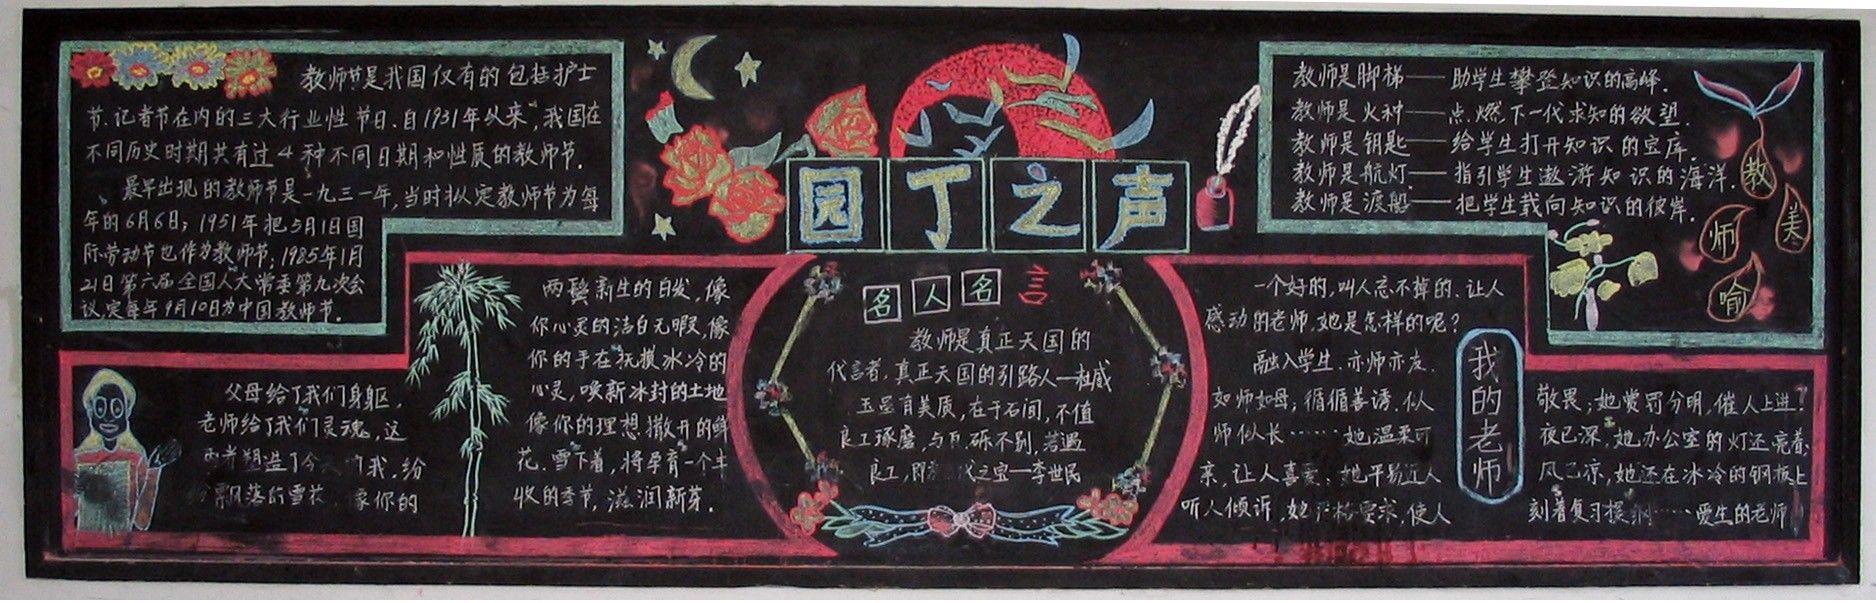 教师节是我国仅有的包括护士
节、记者节在内的三大行业性节日。自1931年以来,我国在
不同历史时期共有过4种不同日期和性质的教师节。
最早出现的教师节是一九三一年,当时拟定教师节为每
年的6月6日;1951年把5月1日国
际劳动节也作为教师节;1985年1月
21日第六届全国人大常委第九次会
议,定每年9月10日为中国教师节。
园丁之声
教师是脚梯——助学生攀登知识的高峰.
教师是火种——点燃下一代求知的欲望.
教师是钥匙——给学生打开知识的宝库.
教师是航灯——指引学生遨游知识的海洋.
教师是渡船——把学生载向知识的彼岸.
教
师
美
喻
父母给了我们身躯,
老师给了我们灵魂,这
两者塑造了今 我,纷
飘落的雪花 像你的
两鬓新生的白发,像
你心灵的洁白无暇,像
你的手在抚摸冰冷的
心灵,唤新冰封的土地
像你的理想撒开的鲜
花.雪下着,将孕育一个丰
收的季节,滋润新芽.
名人名言
教师是真正天国的
代言者,真正天国的引路人—杜威
玉虽有美质,在于石间,不值
良工琢磨,与瓦砾不别,若遇
良工,即 代之宝—李世民
我的老师
一个好的,叫人忘不掉的、让人
感动的老师,她是怎样的呢?
融入学生.亦师亦友.
如师如母;循循善诱.似
师似长……她温柔可
亲,让人喜爱;她平易近人
听人倾诉,她 格要求,使人
敬畏;她赏罚分明,催人上进!
夜已深,她办公室的灯还亮着;
风已凉,她还在冰冷的钢板上
刻着复习提纲……爱生的老师